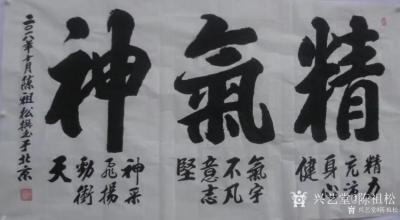 精
精力
充沛
身心
健
氣
氣宇
不凡
意志
堅
神
神采
飛揚
動衝
天
二〇一八年十月陳祖松撰書于北京
兴艺堂@陈祖松
兴艺堂陈祖松